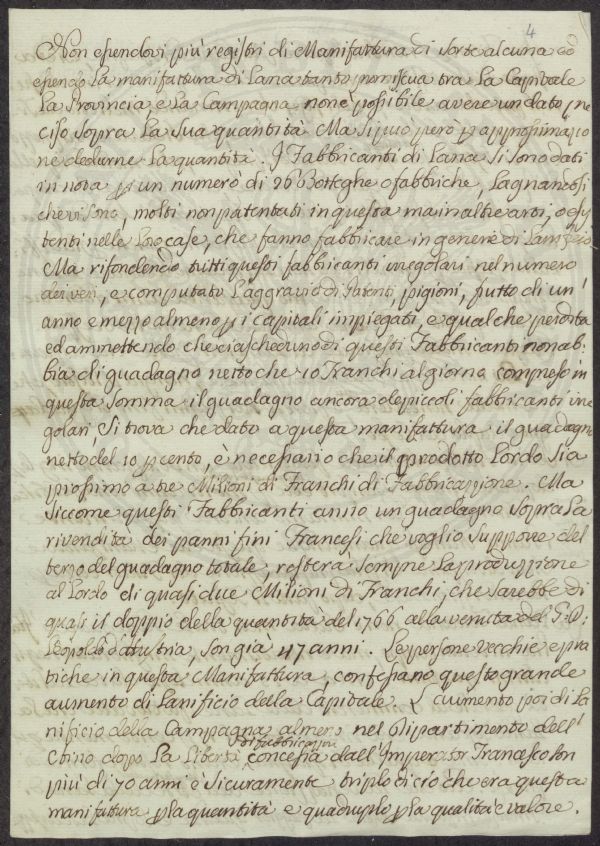 4
Non essendovi più registri di Manifattura di sorte alcuna ed
essendo La manifattura di Lana tanto promiscua tra La Capitale
La Provincia, e La Campagna non è possibile avere un dato pre
ciso sopra La sua quantità Ma si può però p approssimazio
ne dedurne La quantità. I Fabbricanti di Lana si sono dati
in nota p un numerò di 26 Botteghe o fabbriche, Lagnandosi
che vi sono, molti non patentati in questa ma in altre arti, o esis
tenti nelle Loro case, che fanno fabbricare in genere di Lanificio
Ma rifondendo tutti questi fabbricanti irregolari nel numero
dei veri, e computato L'aggravio di Patenti, pigioni, frutto di un'
anno e mezzo almeno p i capitali impiegati, e qualche perdita
ed ammettendo che ciascheduno di questi Fabbricanti non ab;
bia di guadagno netto che 10 Franchi al giorno compreso in
questa somma il guadagno ancora de piccoli fabbricanti irre
golari, Si trova che dato a questa manifattura il guadagno
netto del 10 p cento, è necessario che il prodotto Lordo sia
prossimo a tre Milioni di Franchi di Fabbricazione. Ma
siccome questi Fabbricanti anno un guadagno sopra La
rivendita dei panni fini Francesi che voglio supporre del
terzo del guadagno totale, resterà sempre La produzzione
al Lordo di quasi due Milioni di Franchi, che sarebbe di
quasi il doppio della quantità del 1766 alla venuta del G. D:
Leopoldo d'Austria, son già 47 anni. Le persone vecchie e pra
tiche in questa Manifattura, confessano questo grande
aumento di Lanificio della Capitale. L'aumento poi di La
nificio della Campagna almeno nel Dipartimento dell'
di fabbricazion
Arno dopo La Libertà concessa dall'Imperator Francesco son
più di 70 anni è sicuramente triplo di ciò che era questa
manifattura p la quantità e quadruplo p la qualità e valore.